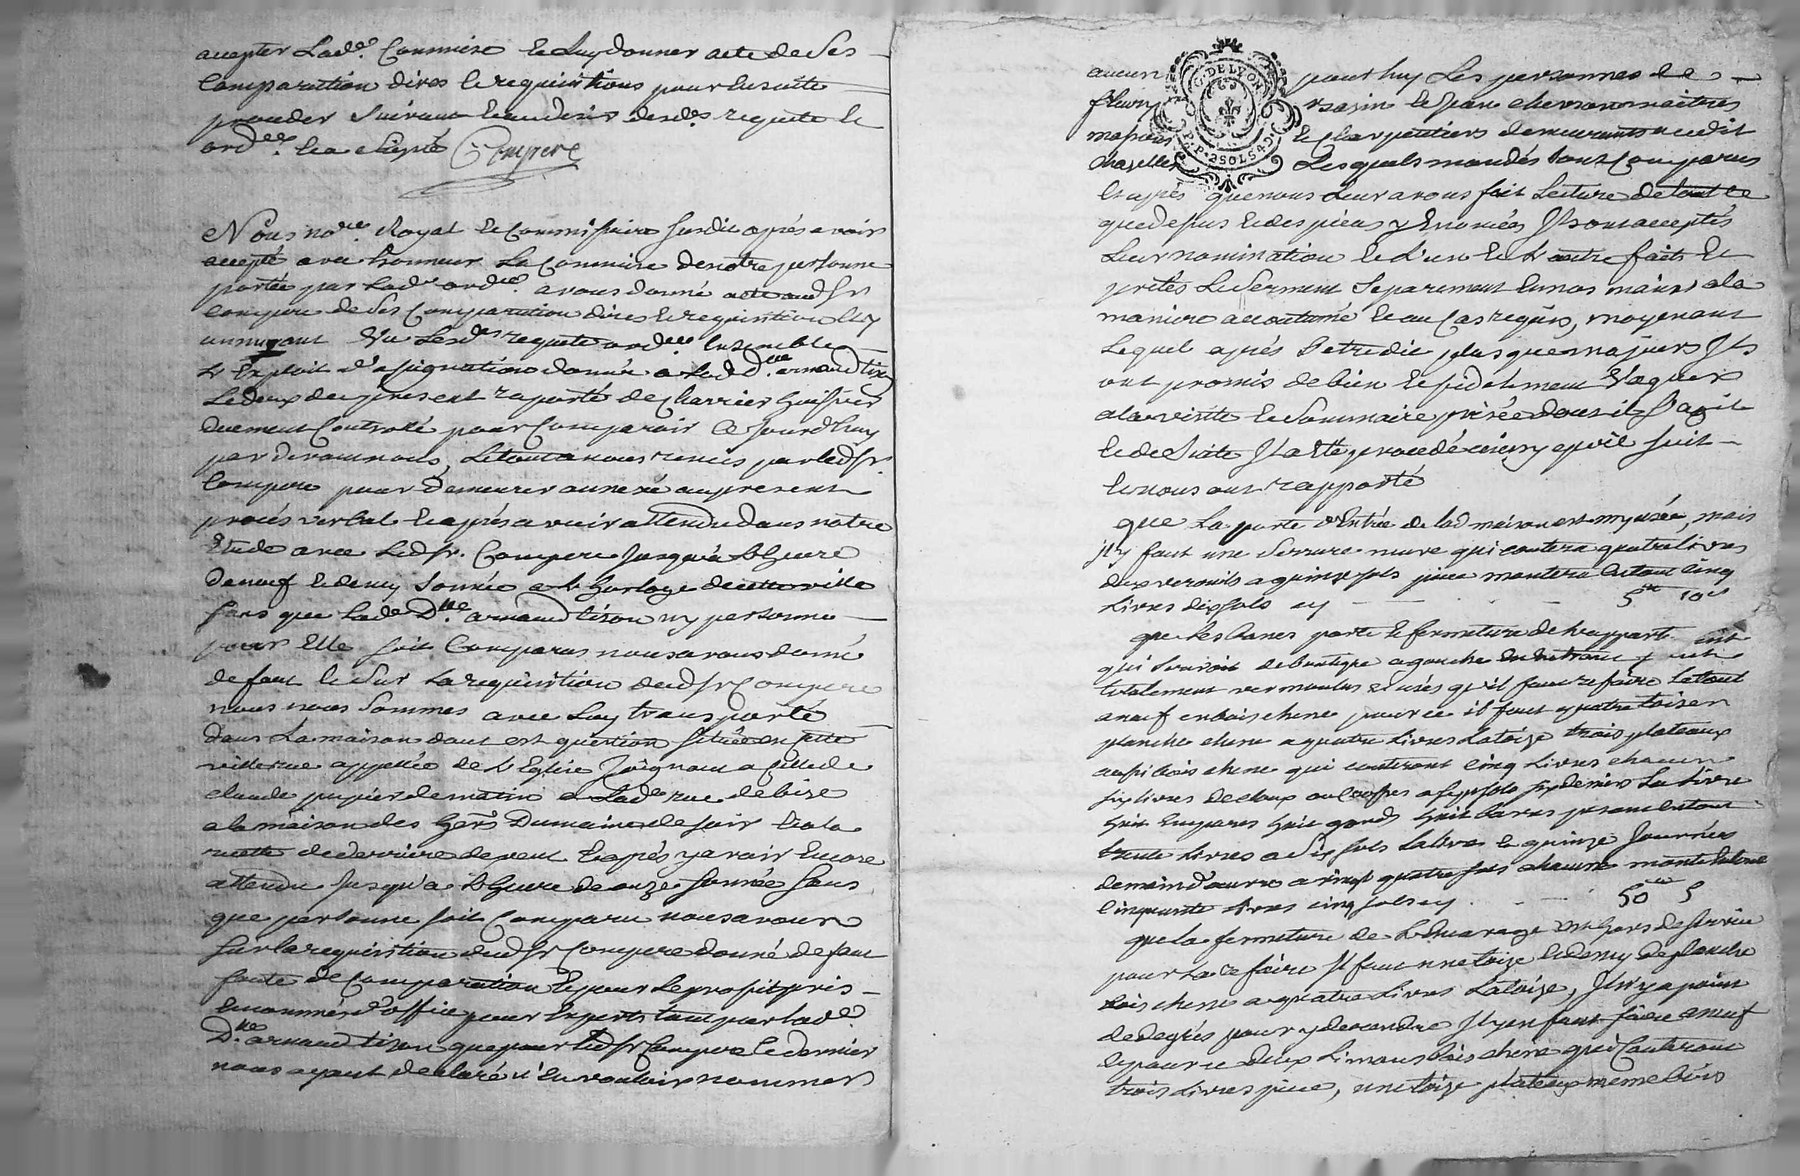 accepter Lad.e Commise et Luy donner acte de Ses
Comparution dires et requisitions pour Ensuitte
proceder Suivant Lesdites requete et
ord.ce et a Signé Compere
Nous no.re Royal et Commissaire Susdit aprés avoir
accepté avec honneur La Commise de notre personne
portée par Lad.e ord.ce avons donné acte aud. Sr
Compere de Ses Comparution dires et requisition
Vu Lesd. requete ord.ce Ensemble
L'Exploit d'assignation donné a Lad. D.lle arnaud tison
Le deux du present raporté de Charrier huissier
duement Controlé pour Comparoir Ce Jourdhuy
par devant nous, Le tout a nous remis par led. Sr.
Compere pour demeurer annexé au present
procés verbal Et aprés avoir attendu dans notre
Etude avec Led. Sr. Compere Jusqu'a L'heure
de neuf et demy Sonnée a L'horloge de cette ville
Sans que Lad.e D.lle arnaud tison ny personne
pour Elle Soit Comparus nous avons donné
defaut Et Sur La requisition dud. Sr Compere
nous nous Sommes avec Luy transporté
dans La maison dont est question Située en Cette
ville rue appellée de L'Eglise Joignant a Celle de
claude papier de matin a Lad.e rue de bize
a la maison des her.s Dumaine de Soir Et a la
ruette de derriere de vent Et aprés y avoir Encore
attendu Jusqu'a L'heure de onze Sonnée Sans
que personne Soit Comparu nous avons
Sur la requisition dud. Sr Compere donné defaut
faute de Comparution Et pour Le profit pris
Et nommés d'office pour Experts tant pour Lad.e
D.lle arnaud tison que pour Led. Sr Compere Ce dernier
nous ayant declaré n'En vouloir nommer
G. DE LYON
G. P. 2 SOLS 4 D.
aucun pour luy Les personnes de
fleury et Jean maitres
maçons Et Charpentiers demeurants
Chazelles Lesquels mandés Sont Comparus
Et aprés que nous Leur avons fait Lecture de tout Ce
que depus Et des pieces y Enoncées Ils ont acceptés
Leur nomination Et L'un Et L'autre faits Et
pretés Le Serment Separement En nos mains a la
maniere accoutumé Et au Cas requis, moyenant
Lequel aprés S'etre dit plus que majeurs Ils
ont promis de bien Et fidelement Vaquer
a la visitte Et Sommaire prisée dont il S'agit
Et de Suite Il a Eté procedé ainsy qu'il Suit
Et nous ont rapporté
que La porte d'Entrée de lad. maison est my usée, mais
Jl y faut une Serrure neuve qui coutera quatre livres
deux verouils a quinze Sols piece montera Le tout Cinq
Livres dix Sols cy 5.tt 10.s
que les bancs porte Et fermeture de
qui Servoit de boutique a gauche
totalement vermoulus et usés qu'il faut refaire Le tout
a neuf en bois chene pour ce il faut quatre toizes
planche chene a quatre Livres La toize trois plateaux
aussi bois chene qui couteront Cinq Livres chacun
Six livres de cloux a Six Sols Six deniers La Livre
huit Empares huit gonds huit barres pesant Le tout
trente Livres a dix Sols La livre Et quinze Journées
de main d'oeuvre a vingt quatre Sols chacune monte Le tout
Cinquante Livres cinq Sols cy 50.tt 5
que La fermeture de L'encavage est hors de Service
pour La refaire Il faut une toize Et demy de planche
bois chene a quatre Livres La toize, Il n'y a point
de degrés pour y descendre Il y en faut faire a neuf
Et pour ce deux Limons bois chene qui Couteront
trois Livres piece, une toize plateaux meme bois